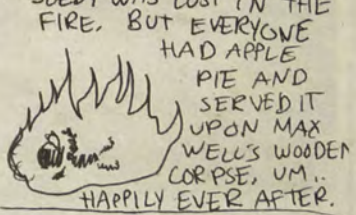 WAS LOST IN THE
FIRE. BUT EVERYONE
HAD APPLE
PIE AND
SERVED IT
UPON MAX
WELL'S WOODEN
CORPSE, UM..
HAPPILY EVER AFTER.